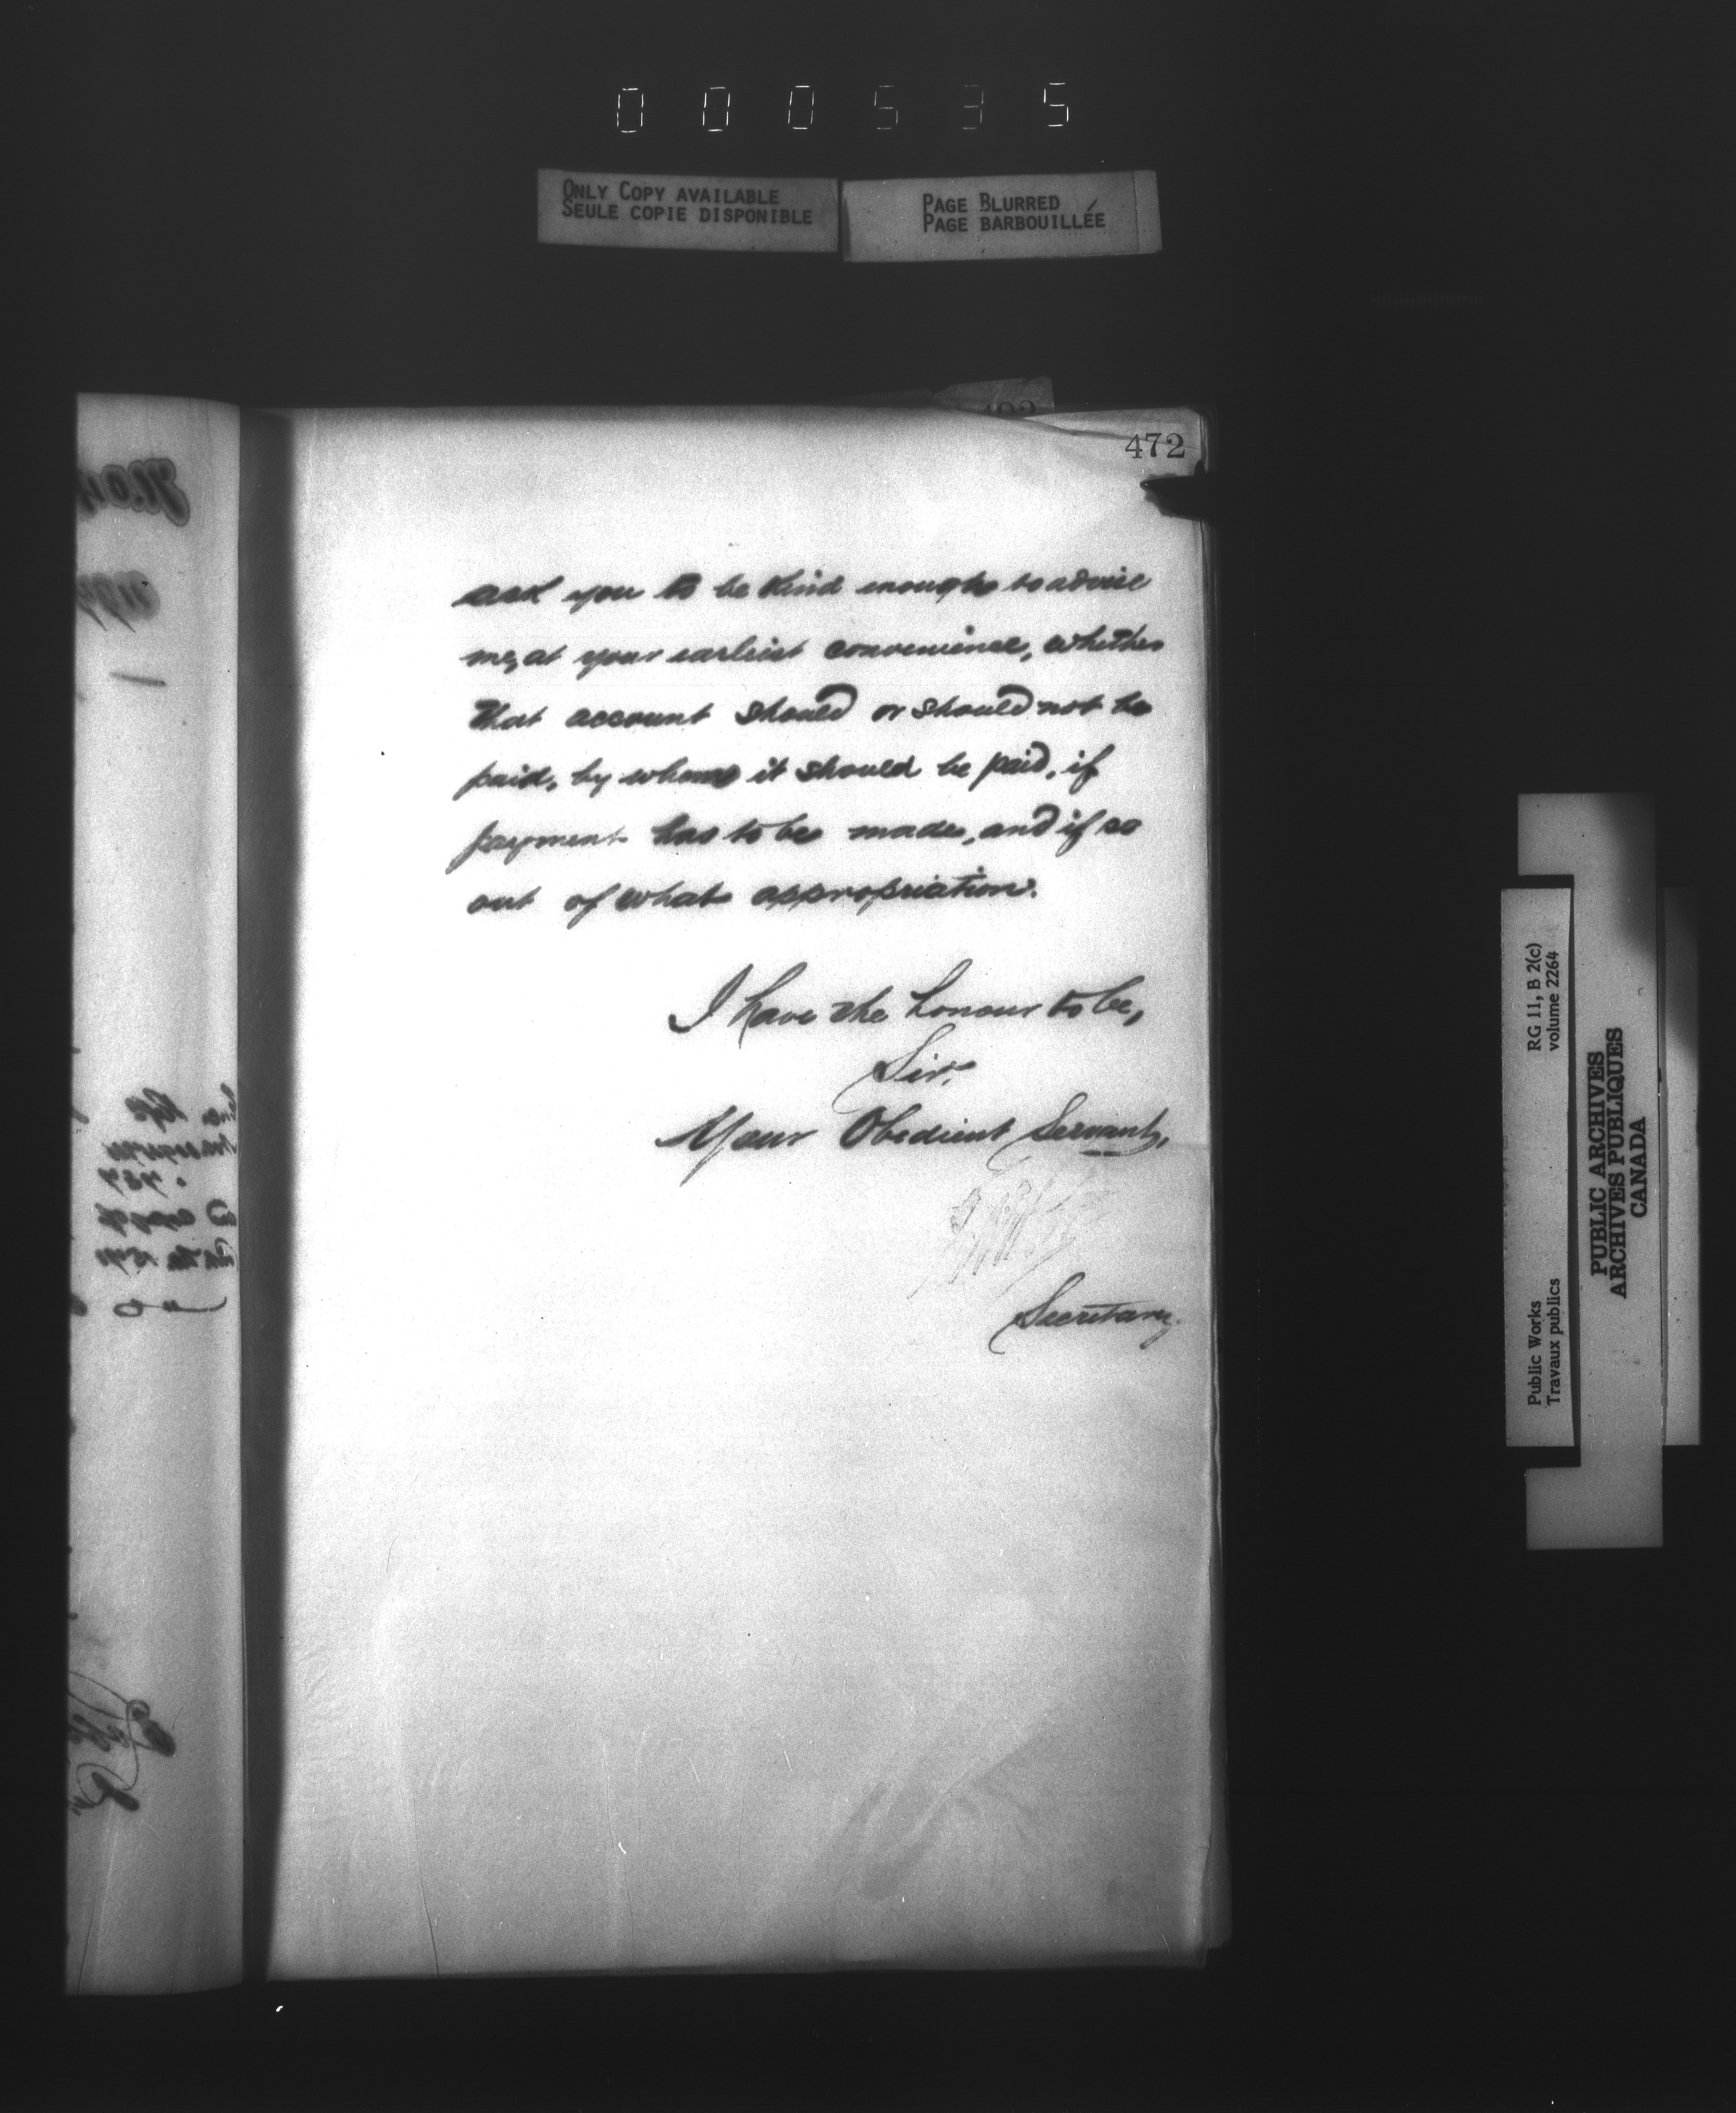 000535
ONLY COPY AVAILABLE
SEULE COPIE DISPONIBLE
PAGE BLURRED
PAGE BARBOUILLÉE
472
ask you to be kind enough to advise
me, at your earliest convenience, whether
that account should or should not be
paid, by whom it should be paid, if
payment has to be made, and if so
out of what appropriation.
I have the honour to be,
Sir,
Your Obedient Servant,
Secretary.
RG 11, B 2(c)
volume 2264
Public Works
Travaux publics
PUBLIC ARCHIVES
ARCHIVES PUBLIQUES
CANADA